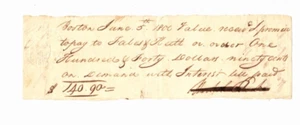 Boston June 5th 1800 Value receivd I promise
to pay to Fales & Heath or order One
Hundred & Forty Dollars ninety cents
on Demand with Interest till paid
$ 140.90